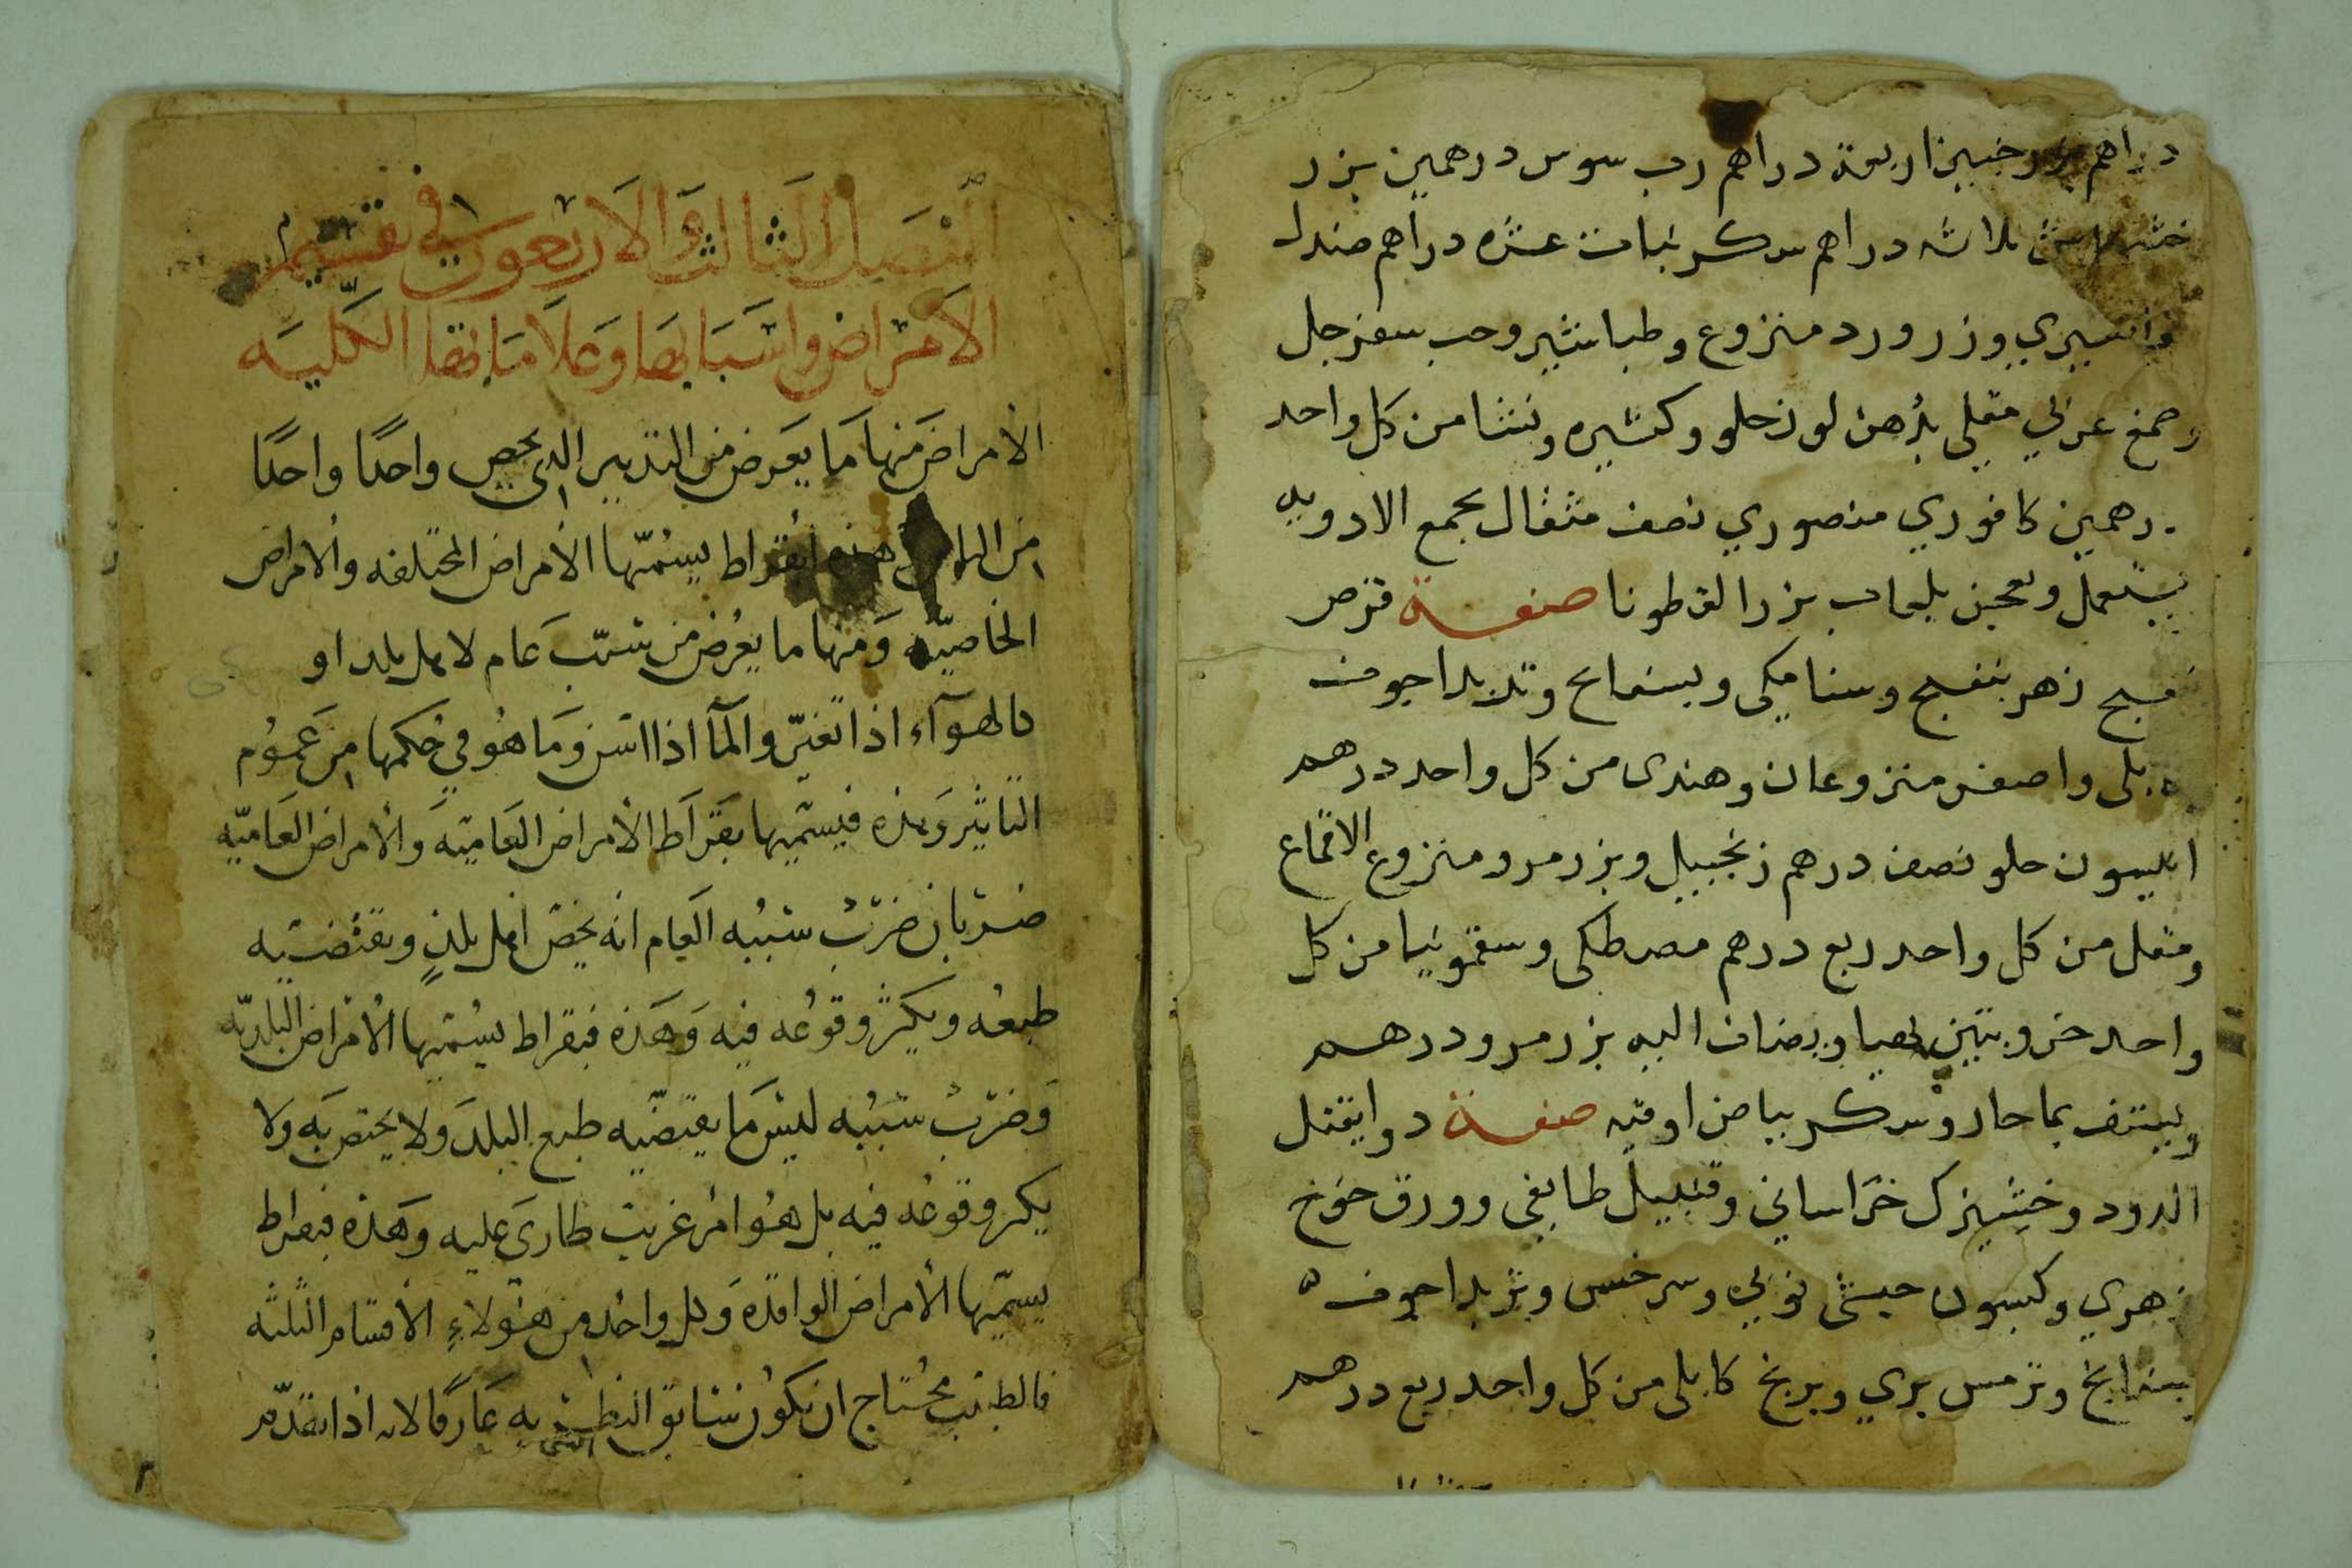 دراهم ترنجبين اربعة دراهم رب سوس درهمين بزر
خشخاش ثلاثه دراهم سكر نبات عشره دراهم صندل
وزرورد منزوع وطباشير وحب سفرجل
وصمغ عربي مقلي بدهن لوز حلو وكثيره ونشا من كل واحد
درهمين كافوري منصوري نصف مثقال تجمع الادويه
يستعمل وتعجن بلعاب بزر القطونا صفة قرص
بنفسج زهر بنفسج وسنا مكي وبسفايج وتربد اجوف
كابلي واصفر منزوعان وهندى من كل واحد درهم
انيسون حلو نصف درهم زنجبيل وبزر مرو منزوع الاقماع
ومقل من كل واحد ربع درهم مصطكى وسقمونيا من كل
واحد خروبتين ويضاف اليه بزر مرو درهم
ويستف بما حار وسكر بياض اوقيه صفة دوا يقتل
الدود وخشيزك خراساني وقنبيل طايفي وورق خوخ
زهري وكيسون حبشى نوبي وسرخس وتربد اجوف
بسفايج وترمس بري وبرنج كابلى من كل واحد ربع درهم
الفصل الثالث والاربعون في تقسيم
الامراض واسبابها وعلاماتها الكليه
الأمراض منها ما يعرض من التدبير الدى يخص واحدًا واحدًا
من الناس هذه ابقراط يسمّيها الأمراض المختلفه والامراض
الخاصيّه ومنها ما يعرض من سبب عام لاهل بلد او
كالهوآء اذا تغيّر والمآ اذا اسن وما هو في حكمها من عموم
التاثير وهذه فيسميها بقراط الأمراض العاميّه والأمراض العاميّه
ضربان ضرب سببه العام انه يخص اهل بلدٍ ويقتضيه
طبعه ويكثر وقوعه فيه وهذه فبقراط يسميها الأمراض البلديّه
وضرب سببه ليس ما يقتضيه طبع البلد ولا يختص به ولا
يكثر وقوعه فيه بل هو امر غريب طارى عليه وهذه فبقراط
يسمّيها الأمراض الوافده وكل واحد من هؤلاءِ الأقسام الثلثه
فالطبيب محتاج ان يكون سابق النظر به عارفًا لانه اذا تقدّم